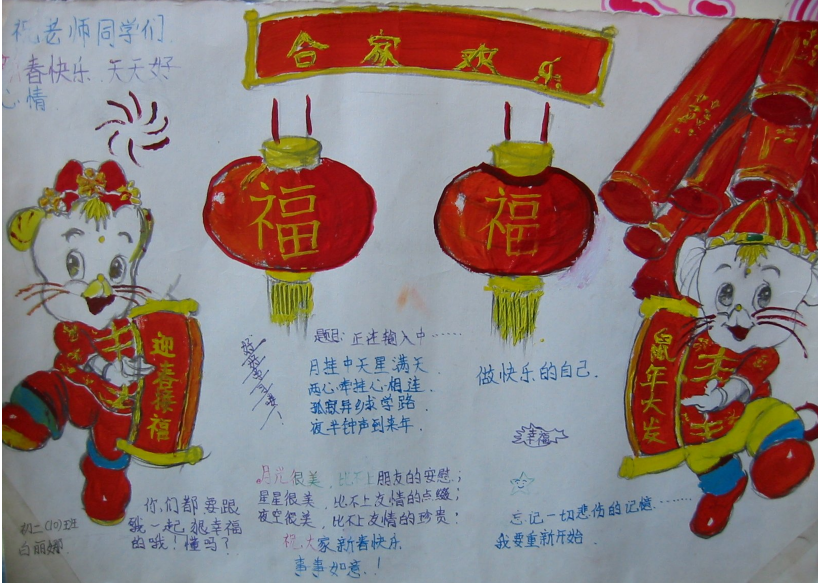 祝老师同学们
春快乐 天天好
心情
合家欢乐
福
福
迎春接福
鼠年大发
题目: 正在输入中……
月挂中天星满天.
两心牵挂心相连.
孤寂异乡求学路.
夜半钟声到来年.
做快乐的自己.
幸福
月光很美, 比不上朋友的安慰;
星星很美, 比不上友情的点缀;
夜空很美, 比不上友情的珍贵:
祝大家新春快乐
事事如意.!
你们都要跟
我一起很幸福
的哦!懂吗?
忘记一切悲伤的记忆………
我要重新开始.
初二(10)班
白丽娜.